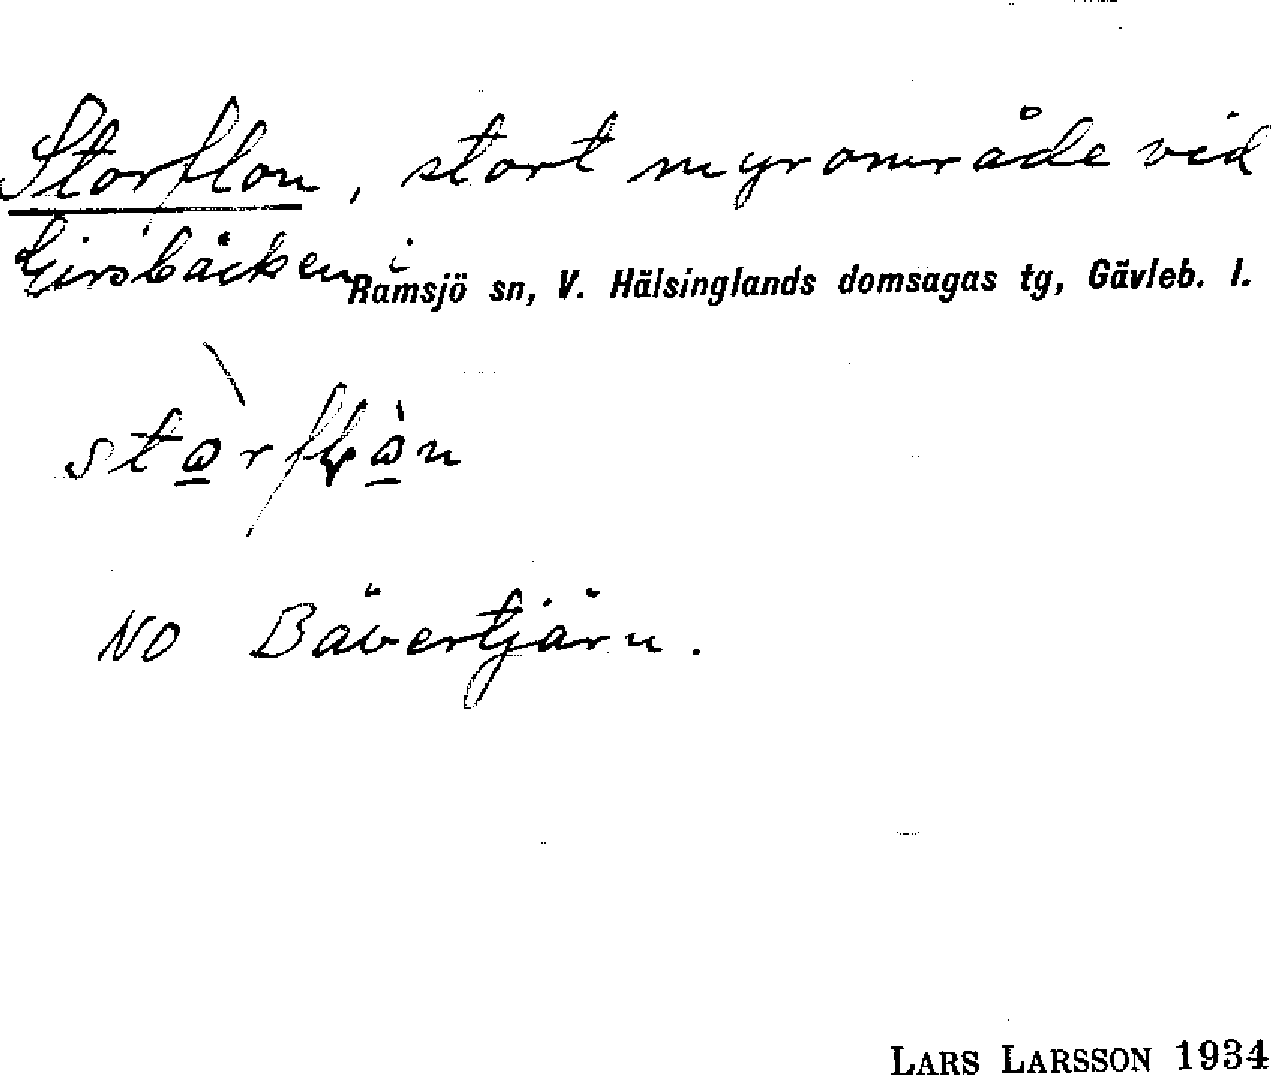 Storflon, stort myrområde vid
Girsbäcken i Ramsjö sn, V. Hälsinglands domsagas tg, Gävleb. l.
NO Bävertjärn.
LARS LARSSON 1934